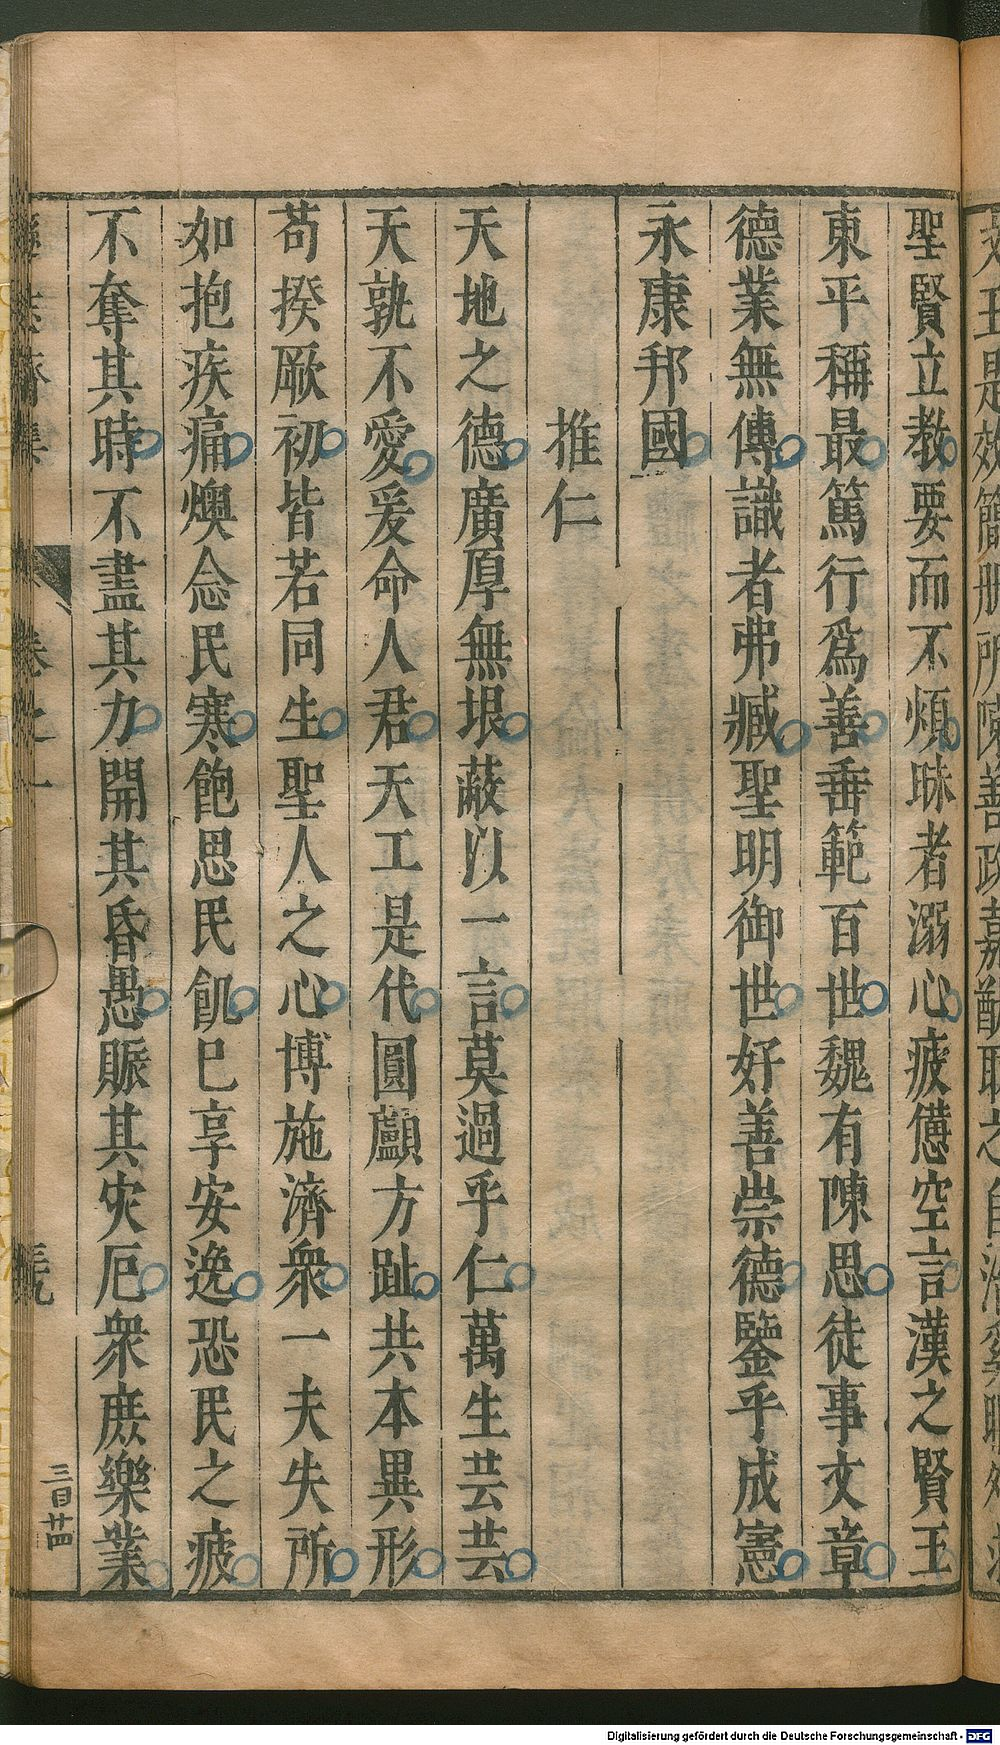 聖賢立教要而不煩昧者溺心疲憊空言漢之賢王
東平稱最篤行爲善垂範百世魏有陳思徒事文章
德業無傳識者弗臧聖明御世好善崇德鑒乎成憲
永康邦國
推仁
天地之德廣厚無垠蔽以一言莫過乎仁萬生芸芸
天孰不愛爰命人君天工是代圓顱方趾共本異形
苟揆厥初皆若同生聖人之心博施濟衆一夫失所
如抱疾痛燠念民寒飽思民飢巳享安逸恐民之疲
不奪其時不盡其力開其昏愚賑其灾厄衆庶樂業
卷之一
三百廿四
Digitalisierung gefördert durch die Deutsche Forschungsgemeinschaft - DFG